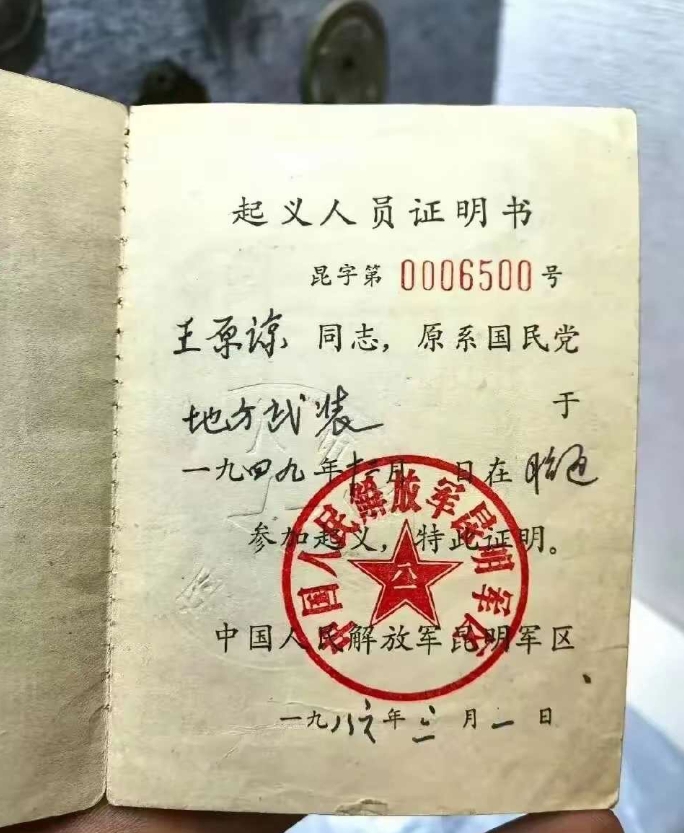 起义人员证明书
昆字第 0006500 号
王原谅 同志，原系国民党
地方武装 于
一九四九年十二月 日在 昭通
参加起义，特此证明。
中国人民解放军昆明军区
八一
中国人民解放军昆明军区
一九八六年三月一日